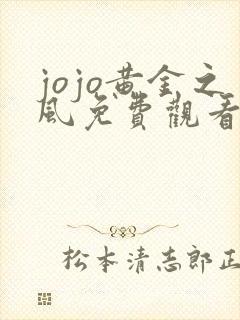 jojo黃金之
風免費觀看
松本清志郎正